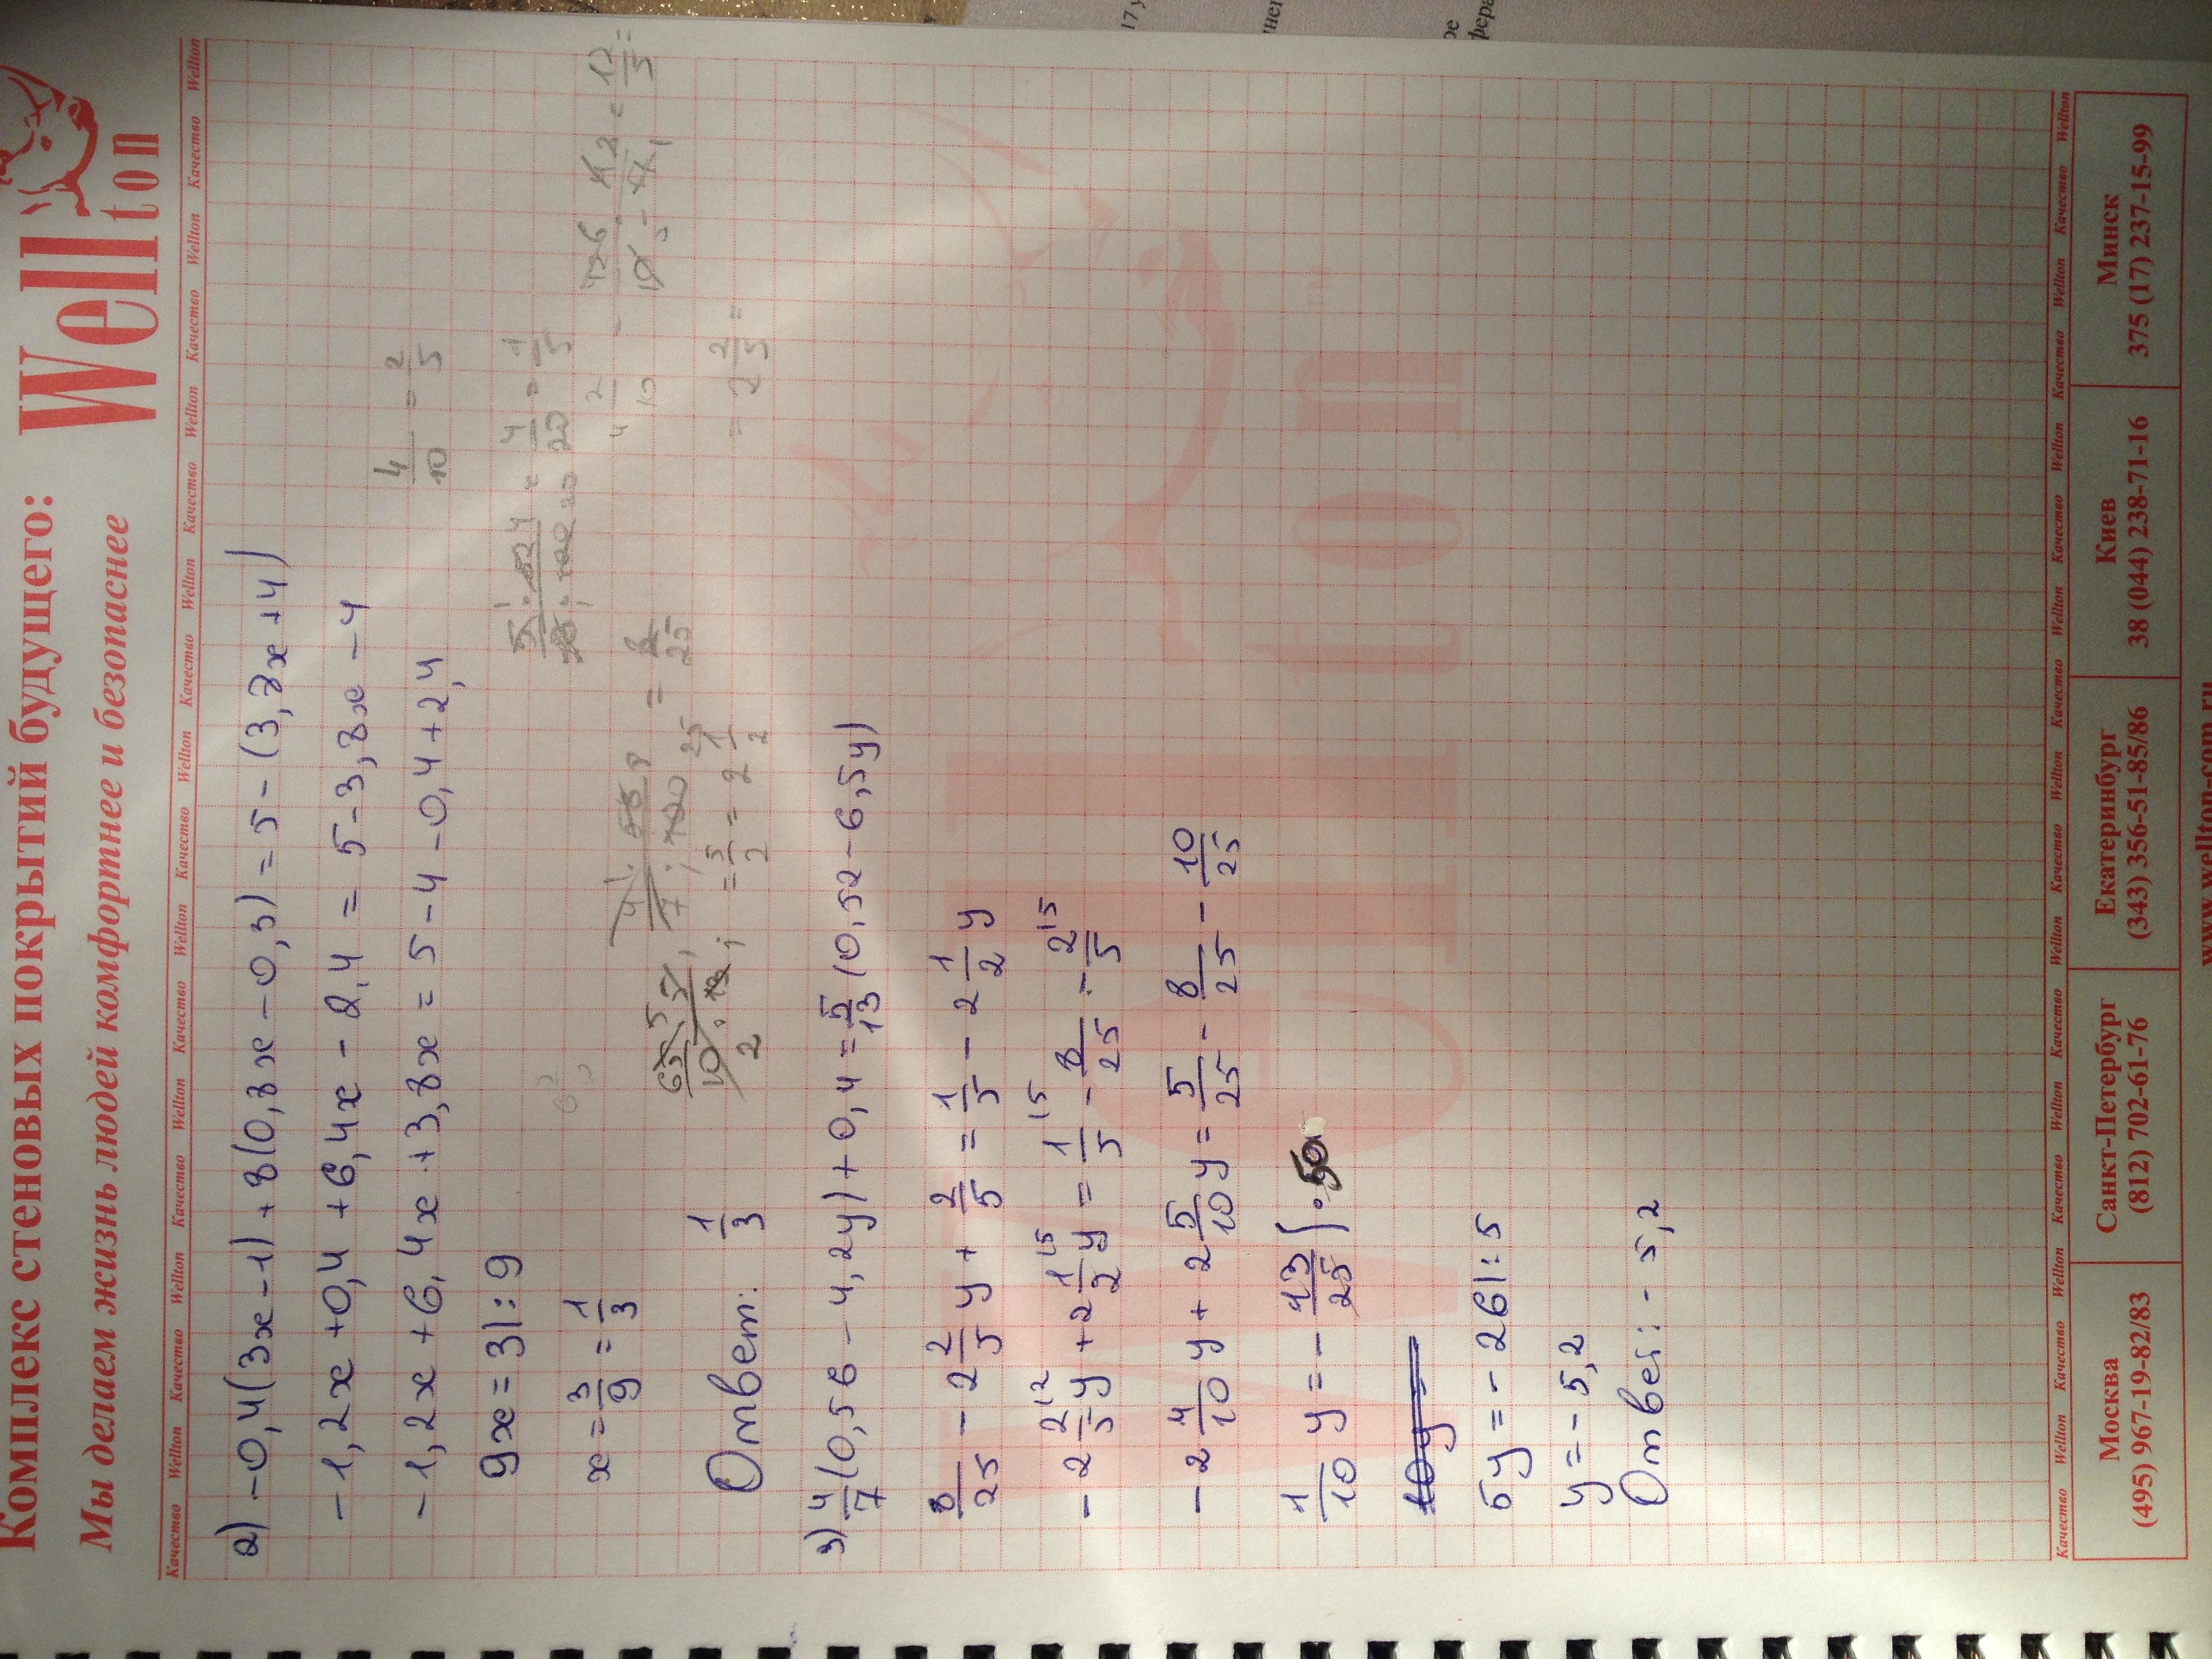 Комплекс стеновых покрытий будущего:
Мы делаем жизнь людей комфортнее и безопаснее
Wellton
Качество Wellton Качество Wellton Качество Wellton Качество Wellton Качество Wellton Качество Wellton Качество Wellton Качество Wellton
2) -0,4(3x-1)+8(0,8x-0,3)=5-(3,8x+4)
-1,2x+0,4+6,4x-2,4=5-3,8x-4
4/10 = 2/5
-1,2x+6,4x+3,8x=5-4-0,4+2,4
9x=3|:9
x=3/9=1/3
Ответ: 1/3
= 5/2 = 2 1/2
= 2 2/5 =
3) 4/7(0,56-4,2y)+0,4=5/13(0,52-6,5y)
8/25 - 2 2/5 y + 2/5 = 1/5 - 2 1/2 y
-2 2/5 y + 2 1/2 y = 1/5 - 8/25 - 2/5
-2 4/10 y + 2 5/10 y = 5/25 - 8/25 - 10/25
1/10 y = - 13/25 | · 50
10y =
5y = -26|:5
y = -5,2
Ответ: -5,2
Качество Wellton Качество Wellton Качество Wellton Качество Wellton Качество Wellton Качество Wellton Качество Wellton Качество Wellton
Москва
(495) 967-19-82/83
Санкт-Петербург
(812) 702-61-76
Екатеринбург
(343) 356-51-85/86
Киев
38 (044) 238-71-16
Минск
375 (17) 237-15-99
www.wellton-com.ru